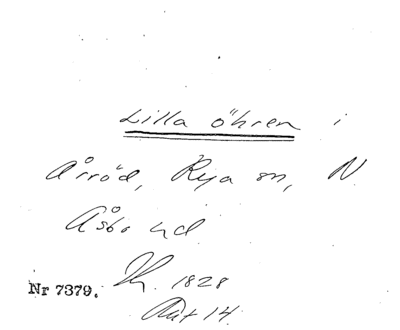 Lilla öhren i
Årröd, Rya sn, N
Åsbo hd
Nr 7379. 1828
Akt 14